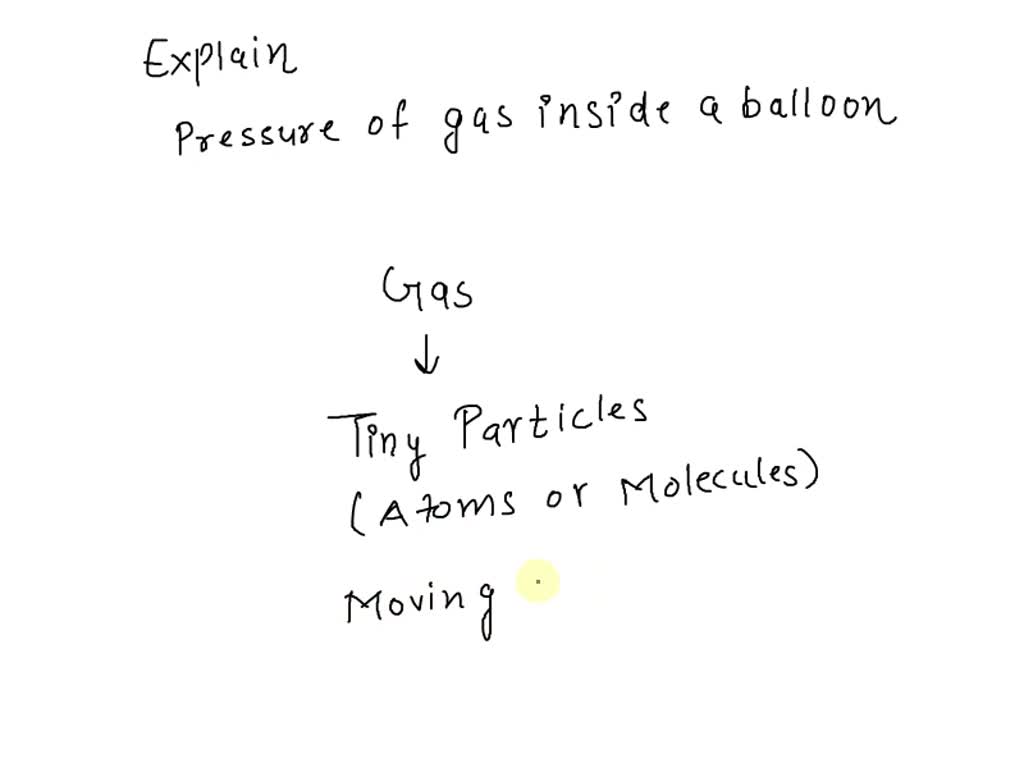 Explain
Pressure of gas inside a balloon
Gas
↓
Tiny Particles
(Atoms or Molecules)
Moving